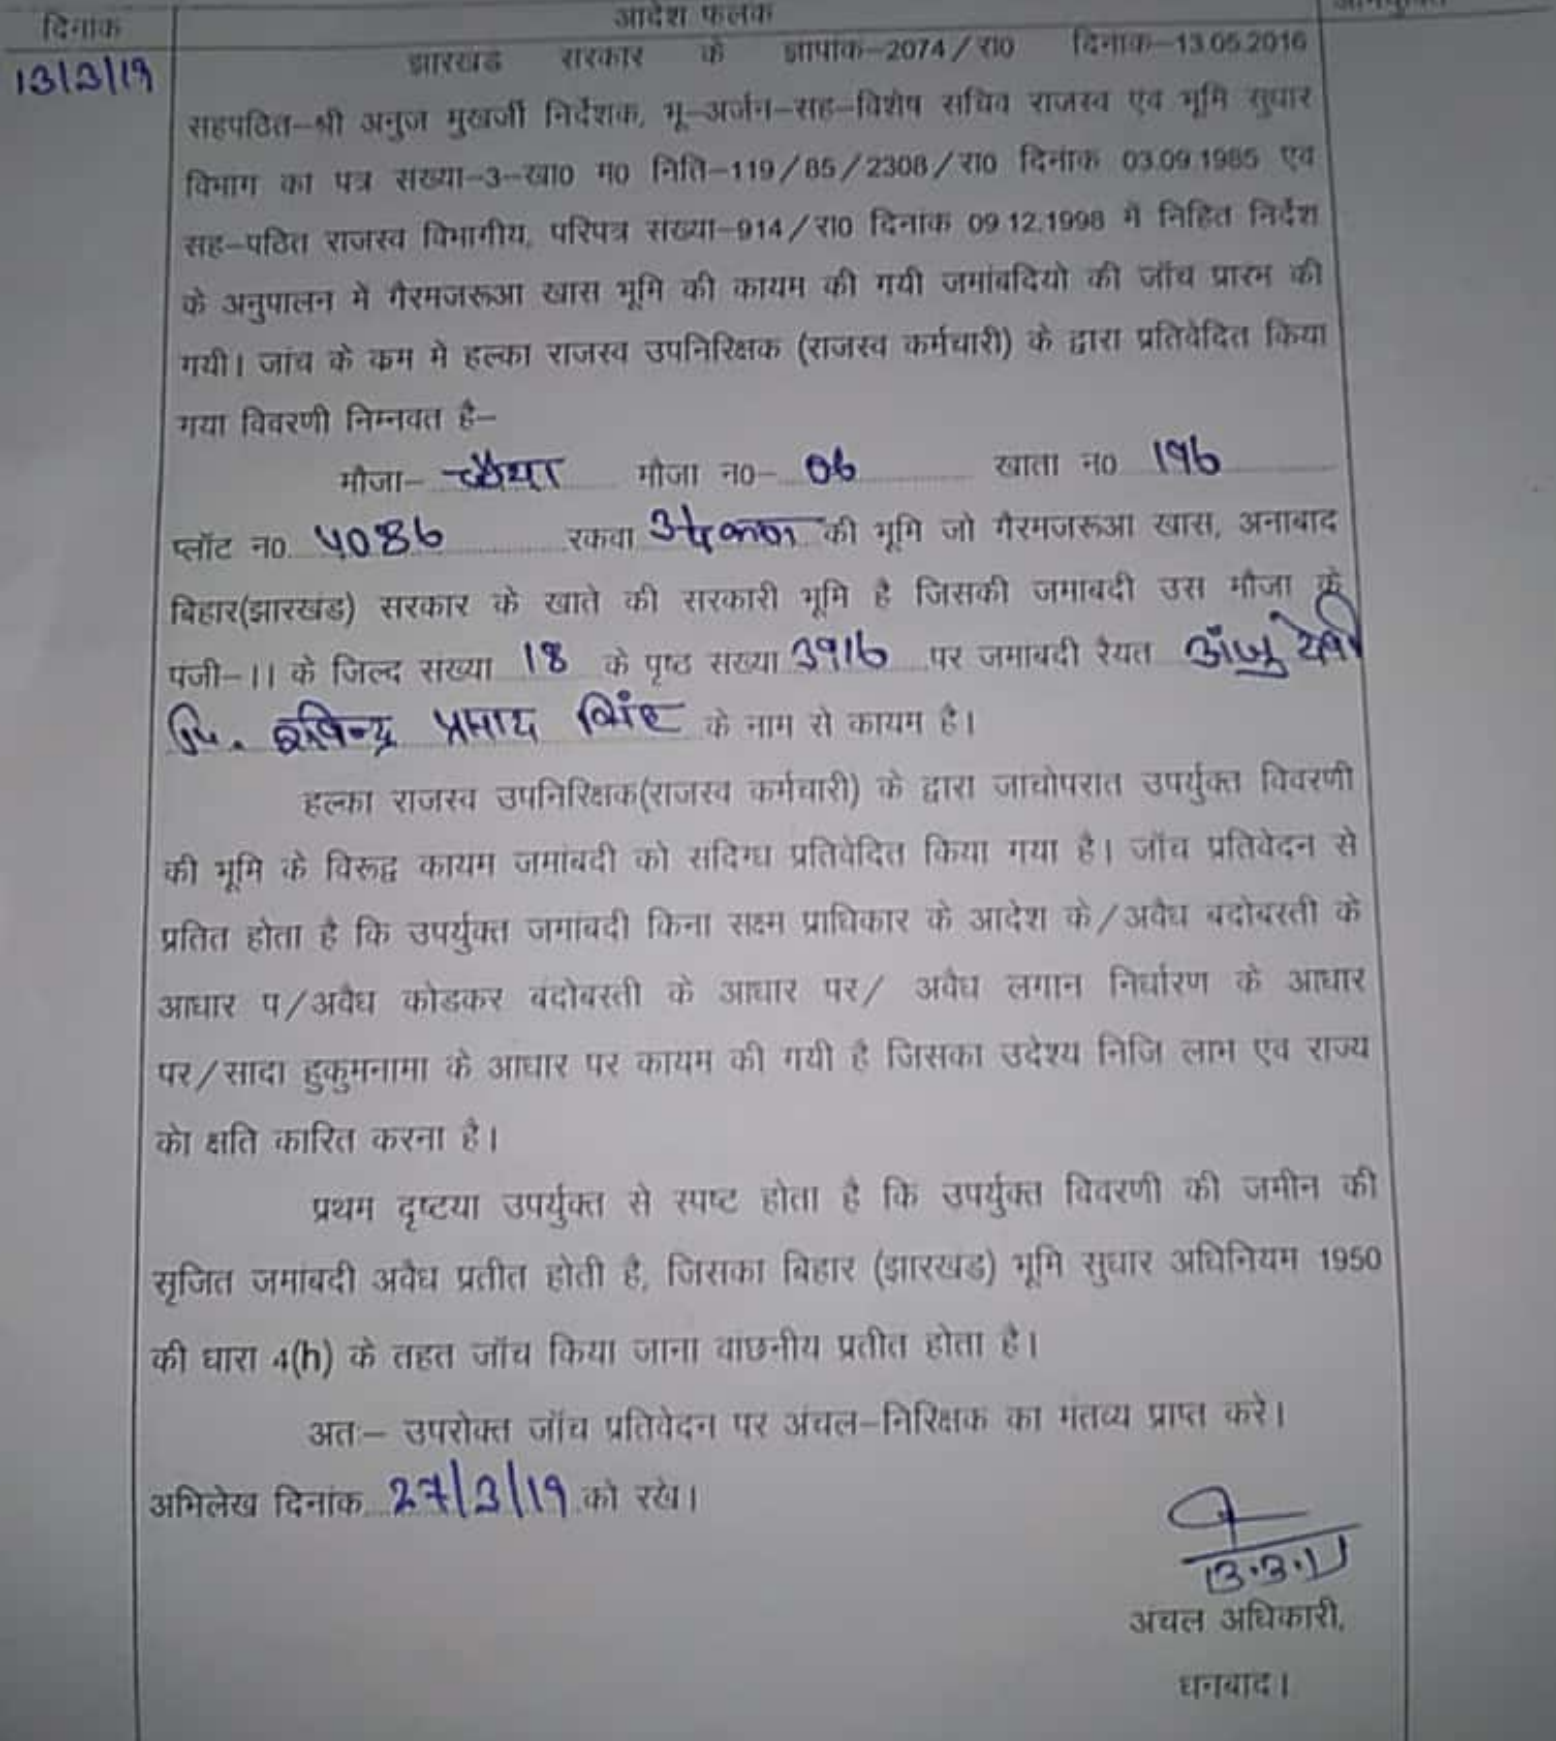 दिनांक
आदेश फलक
13/3/19
झारखंड सरकार के ज्ञापांक-2074/रा0 दिनांक-13.05.2016
सहपठित-श्री अनुज मुखर्जी निर्देशक, भू-अर्जन-सह-विशेष सचिव राजस्व एवं भूमि सुधार
विभाग का पत्र संख्या-3-खा0 म0 निति-119/85/2308/रा0 दिनांक 03.09.1985 एवं
सह-पठित राजस्व विभागीय, परिपत्र संख्या-914/रा0 दिनांक 09.12.1998 में निहित निर्देश
के अनुपालन में गैरमजरूआ खास भूमि की कायम की गयी जमांबदियो की जॉच प्रारंभ की
गयी। जांच के कम मे हल्का राजस्व उपनिरिक्षक (राजस्व कर्मचारी) के द्वारा प्रतिवेदित किया
गया विवरणी निम्नवत है-
मौजा- मौजा न0- 06 खाता न0 196
प्लॉट न0 4086 रकवा की भूमि जो गैरमजरूआ खास, अनाबाद
बिहार(झारखंड) सरकार के खाते की सरकारी भूमि है जिसकी जमाबदी उस मौजा के
पंजी-।। के जिल्द संख्या 18 के पृष्ठ संख्या 3916 पर जमाबदी रैयत अँजु देवी
पि. रविन्द्र प्रसाद सिंह के नाम से कायम है।
हल्का राजस्व उपनिरिक्षक(राजस्व कर्मचारी) के द्वारा जाचोपरांत उपर्युक्त विवरणी
की भूमि के विरूद्व कायम जमांबदी को संदिग्ध प्रतिवेदित किया गया है। जॉच प्रतिवेदन से
प्रतित होता है कि उपर्युक्त जमांबदी किना सक्ष्म प्राधिकार के आदेश के/अवैध बदोबस्ती के
आधार प/अवैध कोडकर बंदोबस्ती के आधार पर/ अवैध लगान निर्धारण के आधार
पर/सादा हुकुमनामा के आधार पर कायम की गयी है जिसका उदेश्य निजि लाभ एवं राज्य
को क्षति कारित करना है।
प्रथम दृष्टया उपर्युक्त से स्पष्ट होता है कि उपर्युक्त विवरणी की जमीन की
सृजित जमांबदी अवैध प्रतीत होती है, जिसका बिहार (झारखंड) भूमि सुधार अधिनियम 1950
की धारा 4(h) के तहत जॉच किया जाना वाछनीय प्रतीत होता है।
अतः- उपरोक्त जॉच प्रतिवेदन पर अंचल-निरिक्षक का मंतव्य प्राप्त करे।
अभिलेख दिनांक 27/3/19 को रखे।
13.3.19
अंचल अधिकारी,
धनबाद।